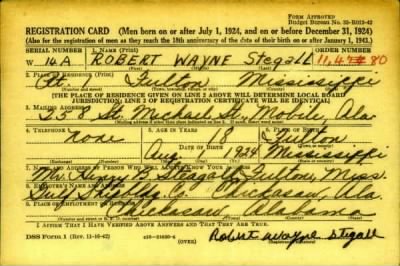 FORM APPROVED
Budget Bureau No. 33-R012-42
REGISTRATION CARD (Men born on or after July 1, 1924, and on or before December 31, 1924)
(Also for the registration of men as they reach the 18th anniversary of the date of their birth on or after January 1, 1943.)
SERIAL NUMBER 1. NAME (Print) ORDER NUMBER
W 14A ROBERT WAYNE Stegall 11,474 #80
2. PLACE OF RESIDENCE (Print)
Rt. 1 Fulton Mississippi
[THE PLACE OF RESIDENCE GIVEN ON LINE 2 ABOVE WILL DETERMINE LOCAL BOARD
JURISDICTION; LINE 2 OF REGISTRATION CERTIFICATE WILL BE IDENTICAL]
3. MAILING ADDRESS
258 St. Mobile, Ala
4. TELEPHONE 5. AGE IN YEARS
none 18 Fulton
DATE OF BIRTH
1924 Mississippi
7. NAME AND ADDRESS OF PERSON WHO WILL ALWAYS KNOW YOUR ADDRESS
Mr. Henry Stegall Fulton, Miss.
8. EMPLOYER'S NAME AND ADDRESS
Gulf Chickasaw, Ala
9. PLACE OF EMPLOYMENT OR BUSINESS
Chickasaw, Alabama
I AFFIRM THAT I HAVE VERIFIED ABOVE ANSWERS AND THAT THEY ARE TRUE.
DSS Form 1 (Rev. 11-16-42)
Robert Wayne Stegall